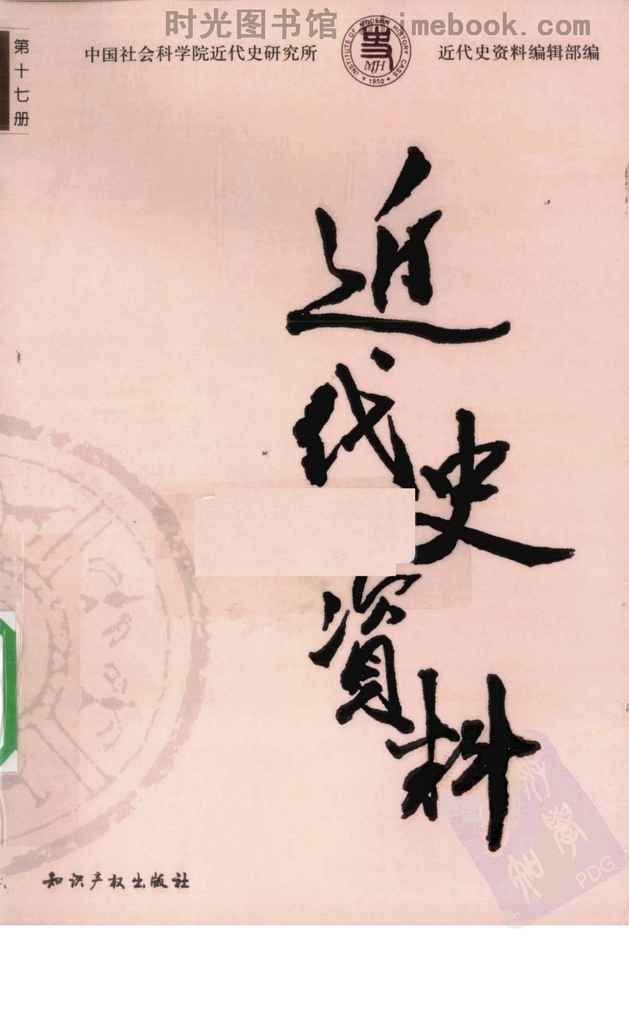 时光图书馆 imebook.com
第十七册
中国社会科学院近代史研究所
INSTITUTE OF MODERN HISTORY CASS
MJH
1950
近代史资料编辑部编
近代史资料
知识产权出版社
PDG